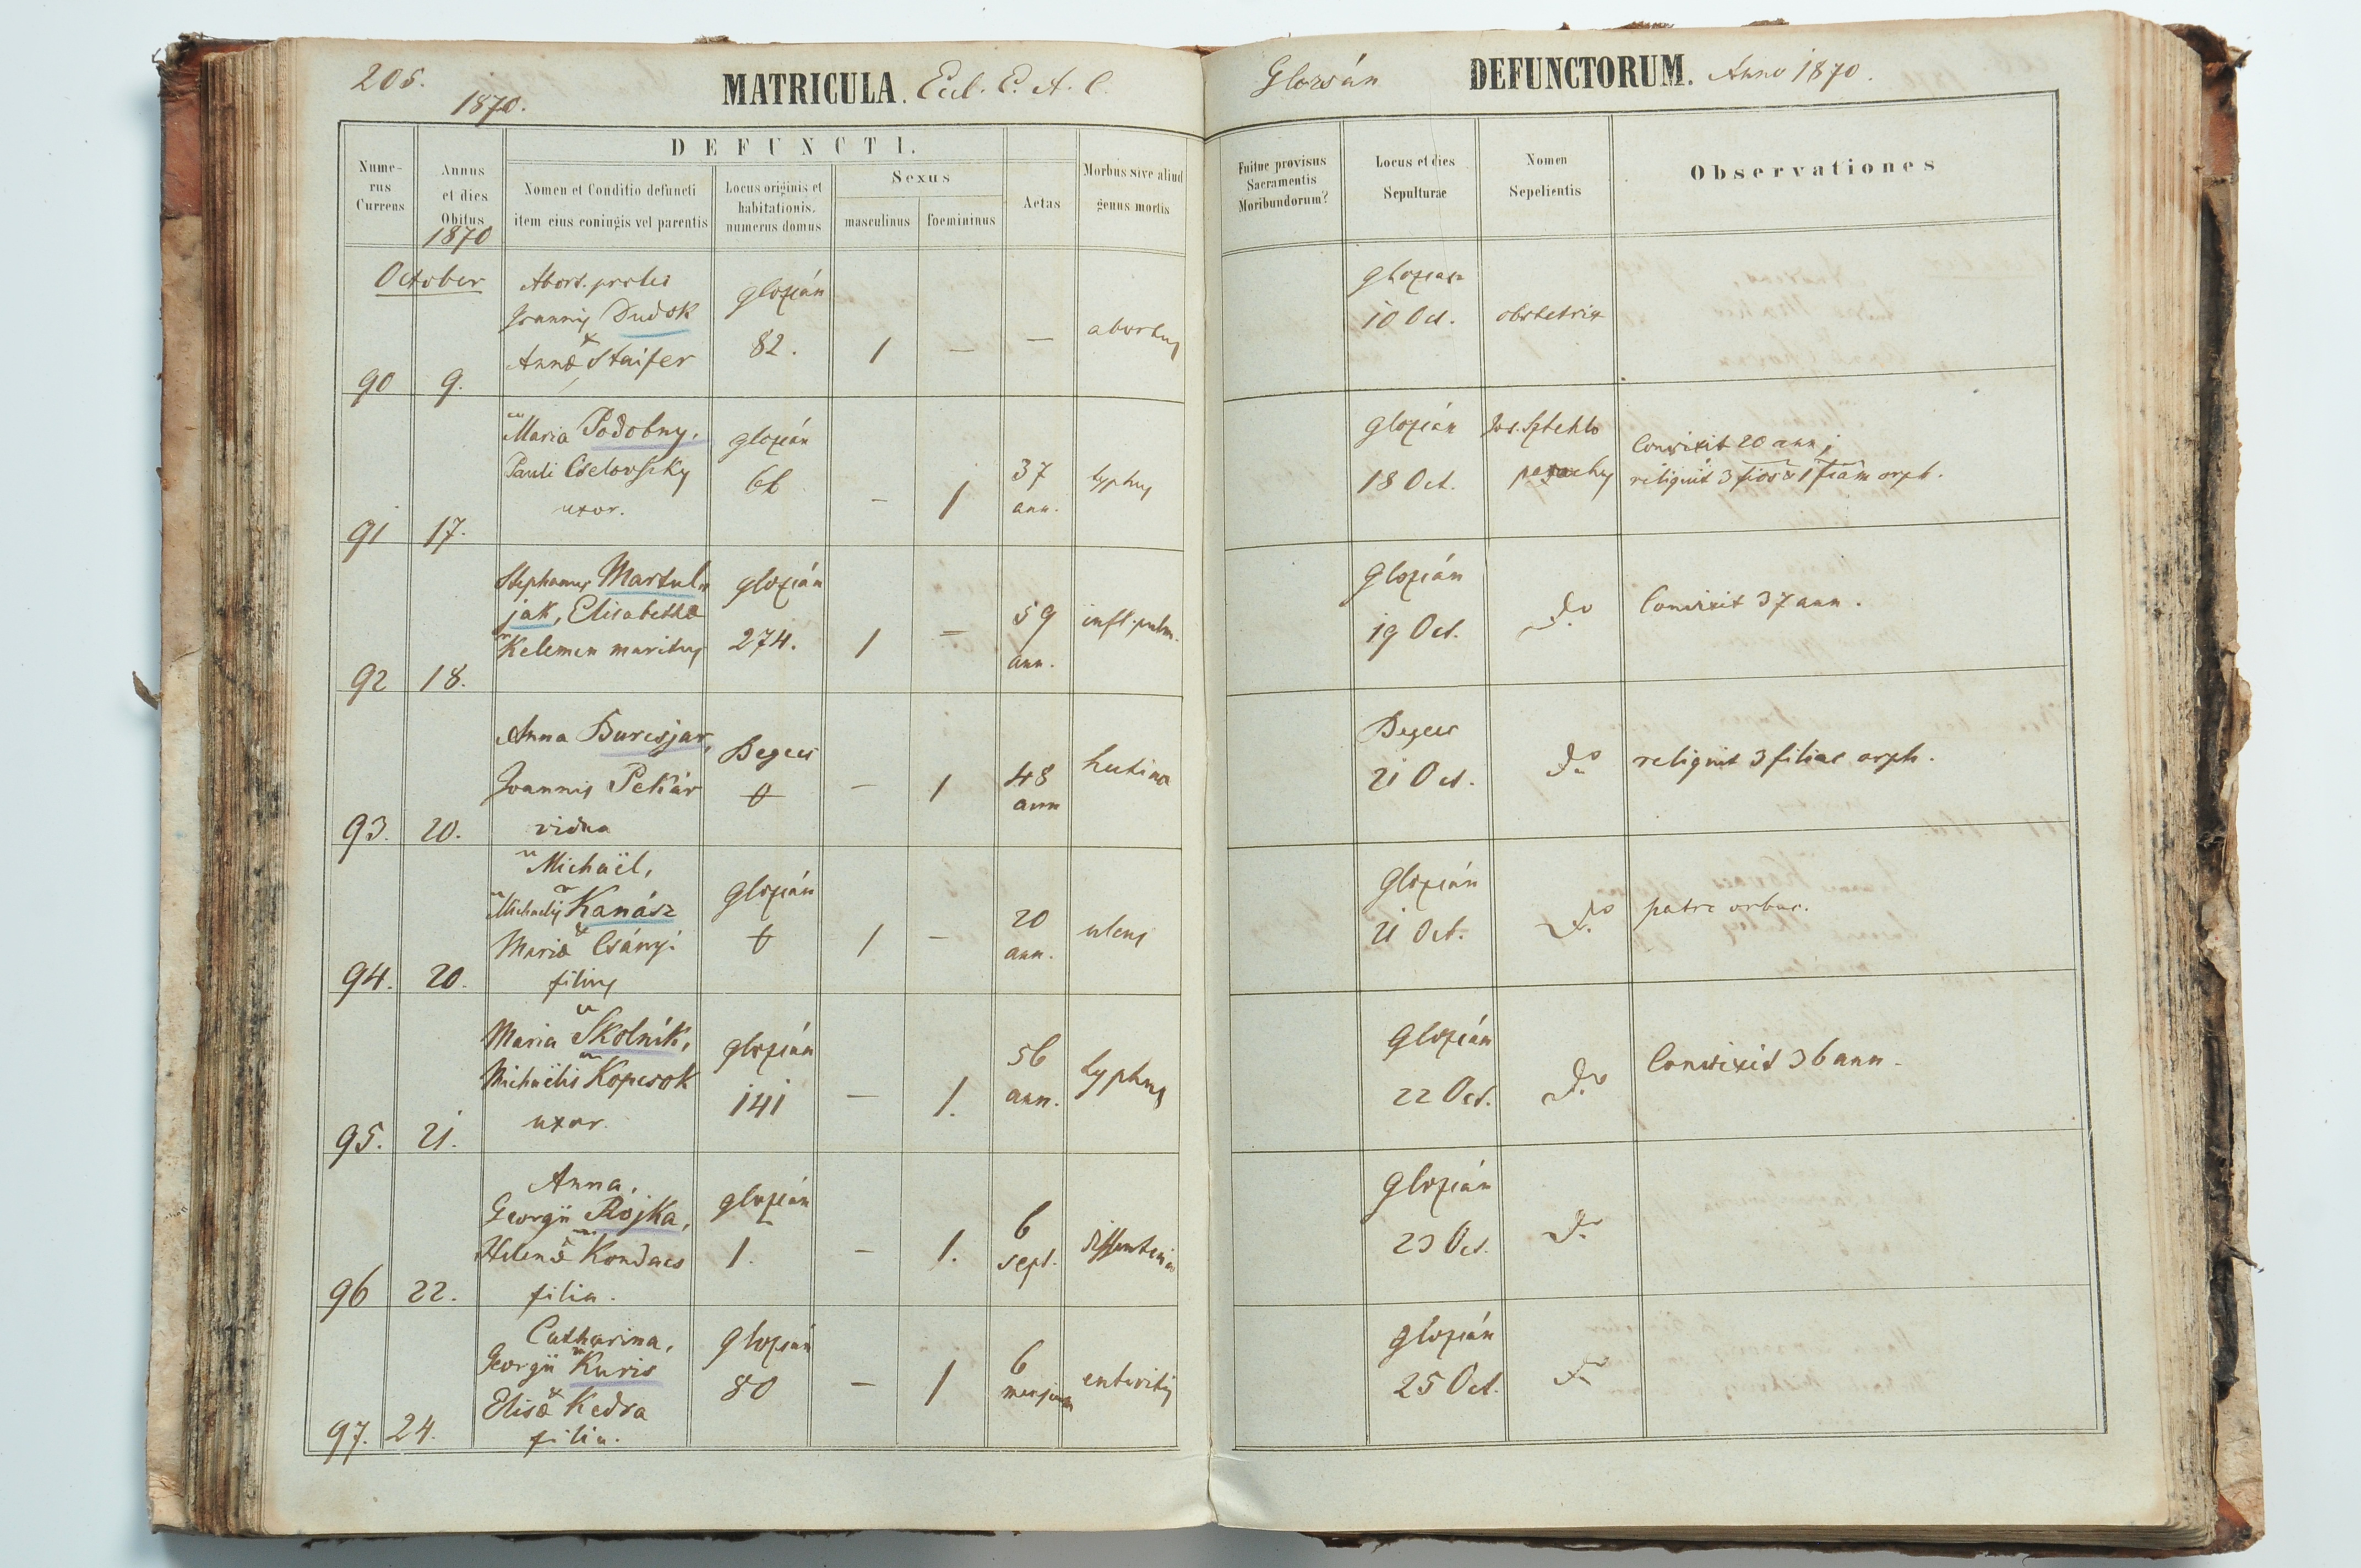 205.
1870.
MATRICULA. Eccl. E. A. C.
Glozsán DEFUNCTORUM. Anno 1870.
Nume-
rus
Currens
Annus
et dies
Obitus
1870
DEFUNCTI.
Nomen et Conditio defuncti
item eius coniugis vel parentis
Locus originis et
habitationis,
numerus domus
Sexus
masculinus
foemininus
Aetas
Morbus sive aliud
genus mortis
Fuitne provisus
Sacramentis
Moribundorum?
Locus et dies
Sepulturae
Nomen
Sepelientis
Observationes
October
90
9.
Abort. proles
Joannis Dudok
Annæ Staifer
glozsán
82.
1
—
—
abortus
glozsán
10 Oct.
obstetrix
91
17.
Maria Podobny,
Pauli Cselovszky
uxor.
glozsán
66
—
1
37
ann.
typhus
glozsán
18 Oct.
parochus
Convixit 20 ann;
reliquit 3 fios & 1 fiam orph.
92
18.
Stephanus Martul
jak, Elisabethæ
Kelemen maritus
glozsán
274.
1
—
59
ann.
infl. pulm.
Glozsán
19 Oct.
do
Convixit 37 ann.
93.
20.
Anna Burcsjar,
Joannis Pekár
vidua
Begecs
—
1
48
ann
Begecs
21 Oct.
do
reliquit 3 filias orph.
94.
20.
Michaël,
Michaelis Kanász
Mariæ Csányi
filius
glozsán
1
—
20
ann.
ulcus
glozsán
21 Oct.
do
patre orbus.
95.
21.
Maria Skolnik,
Michaëlis Kopcsok
uxor.
glozsán
141
—
1.
56
ann.
typhus
glozsán
22 Oct.
do
Convixit 36 ann.
96
22.
Anna,
Georgii Rojka,
Helenæ Kondacs
filia.
glozsán
1.
—
1.
6
sept.
glozsán
23 Oct.
do
97.
24.
Catharina,
Georgii Kuris
Elisæ Kedra
filia.
glozsán
80
—
1
6
mensium
enteritis
glozsán
25 Oct.
do